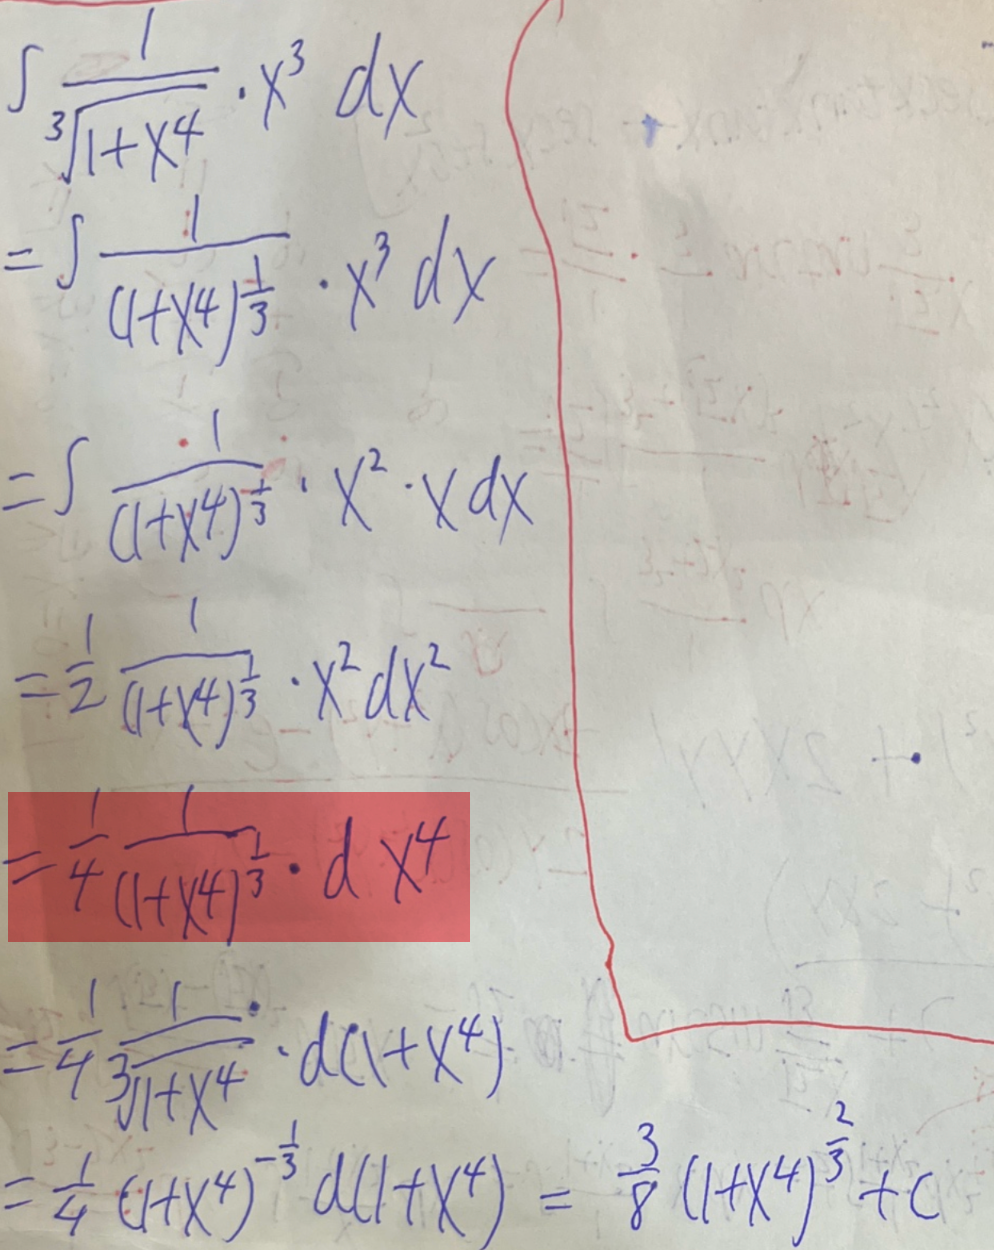 ∫ 1/∛(1+x⁴) · x³ dx
= ∫ 1/(1+x⁴)^(1/3) · x³ dx
= ∫ 1/(1+x⁴)^(1/3) · x² · x dx
= 1/2 1/(1+x⁴)^(1/3) · x² dx²
= 1/4 1/(1+x⁴)^(1/3) · d x⁴
= 1/4 1/∛(1+x⁴) · d(1+x⁴)
= 1/4 (1+x⁴)^(-1/3) d(1+x⁴) = 3/8 (1+x⁴)^(2/3) + C